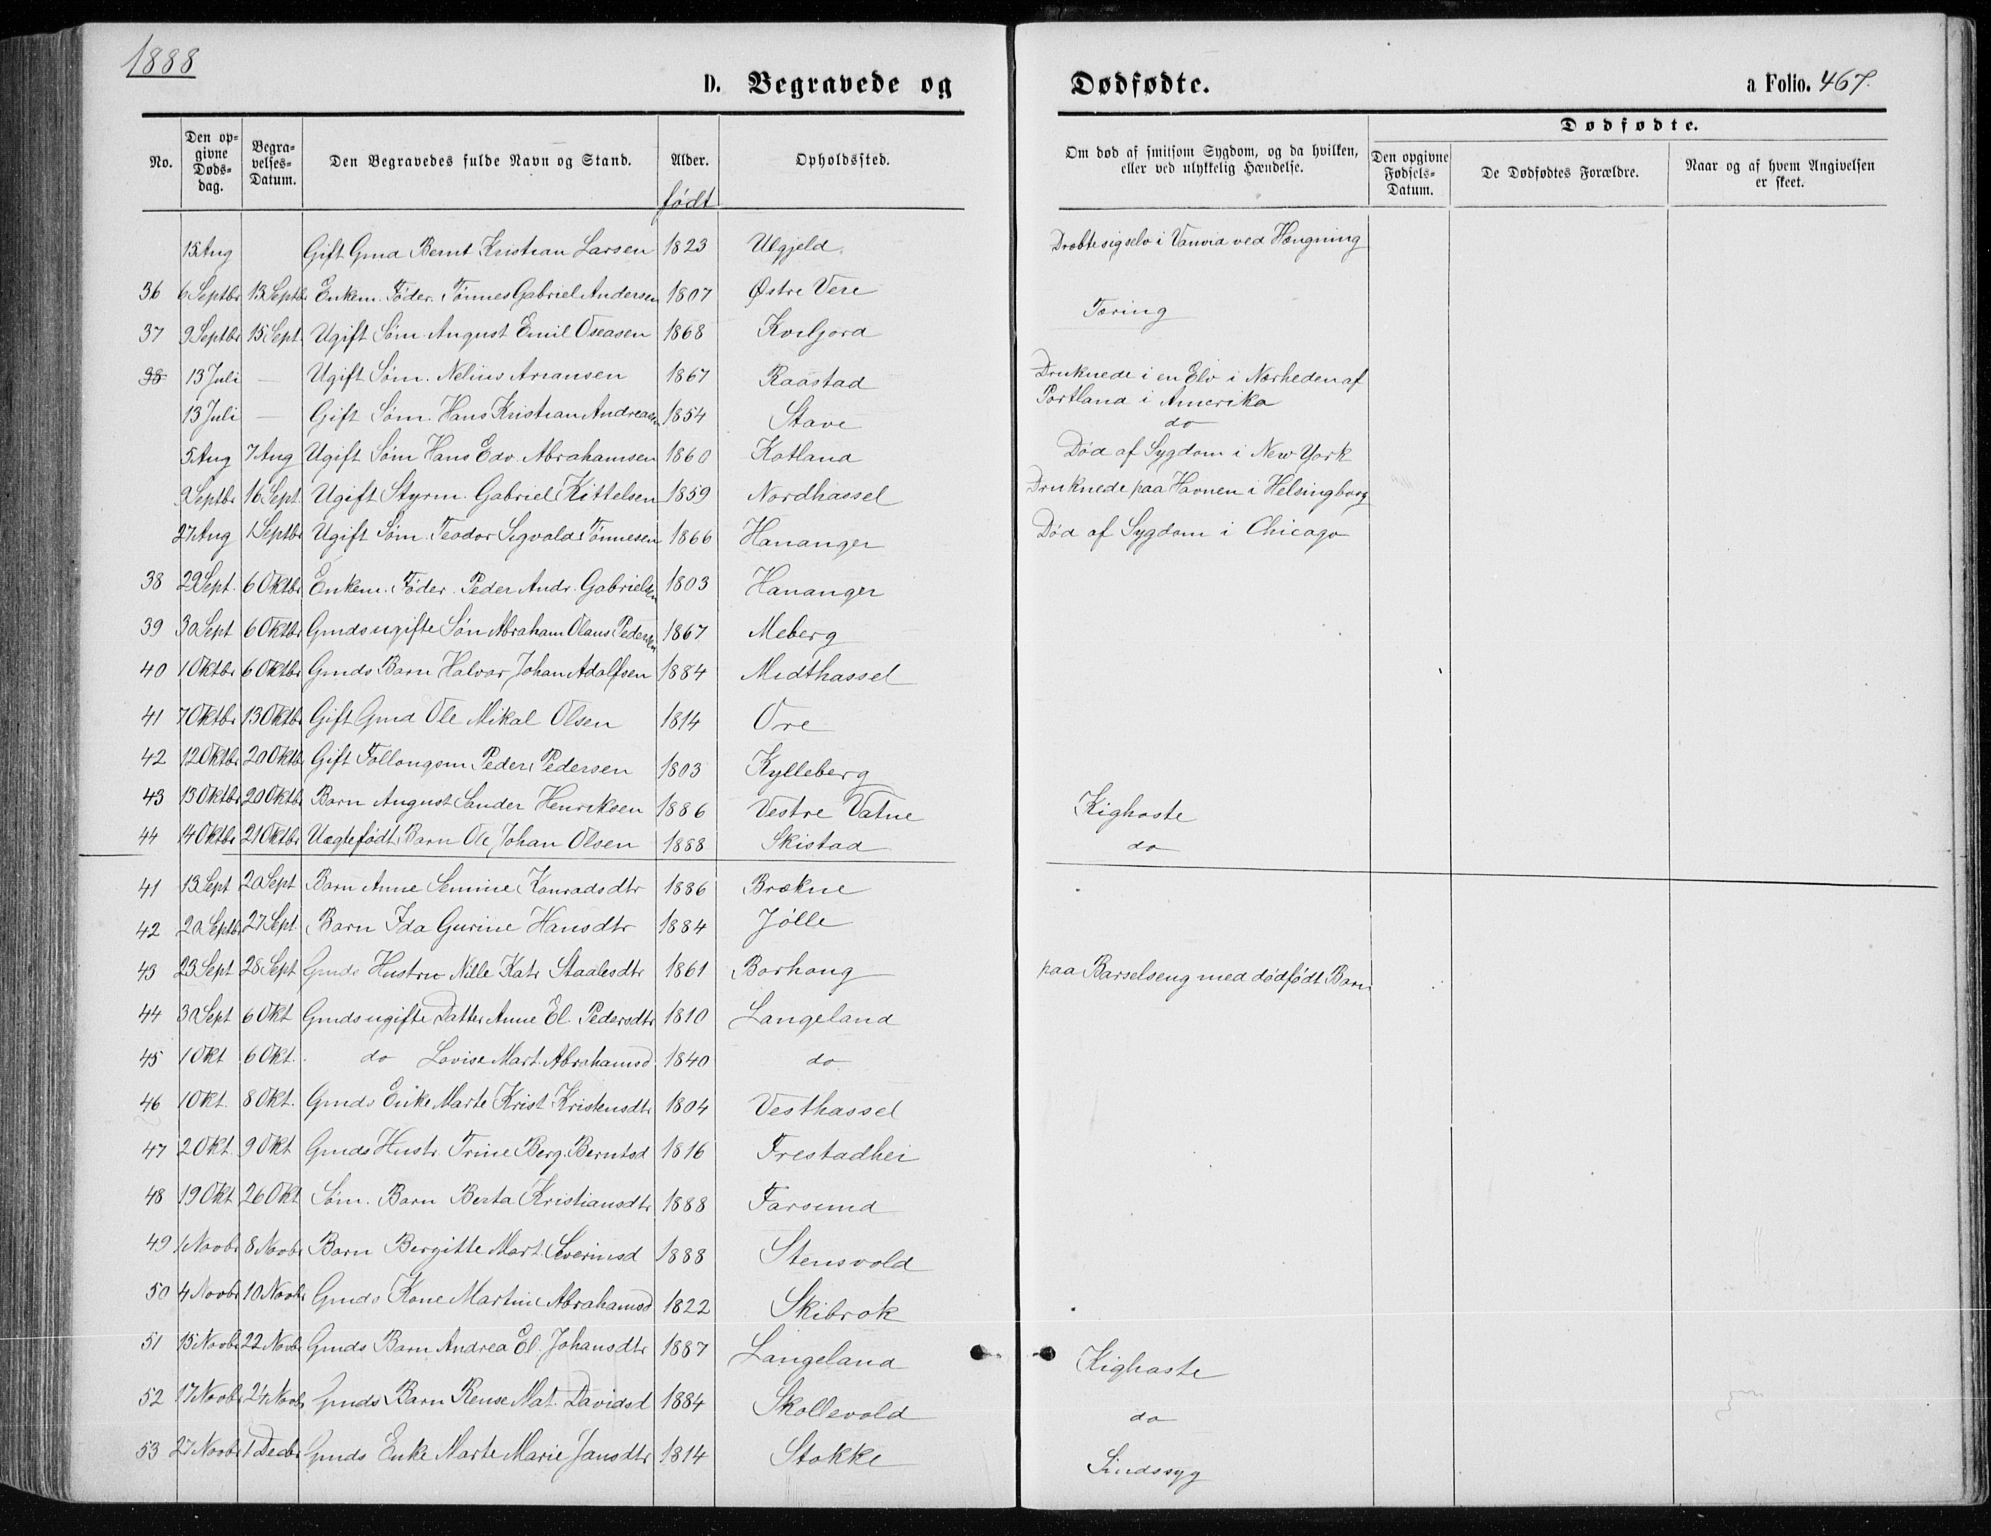 1888
D. Begravede og Dødfødte. a Folio. 467.
No. Den opgivne Dødsdag. Begravelses-Datum. Den Begravedes fulde Navn og Stand. Alder. født Opholdssted. Om død af smitsom Sygdom, og da hvilken, eller ved ulykkelig Hændelse. Dødfødte. Den opgivne Fødsels-Datum. De Dødfødtes Forældre. Naar og af hvem Angivelsen er skeet.
15 Aug Gift Gmd Bernt Kristian Larsen 1823 Ulgjeld Dræbte sig selv i Vanvid ved Hængning
36 6 Septbr 13 Septbr Enkem. Føder. Tønnes Gabriel Andersen 1807 Østre Vere
37 9 Septbr 15 Sept. Ugift Søm. August Emil Oseasen 1868 Kviljord Tæring
38 13 Juli — Ugift Søm. Nelius Ariansen 1867 Raastad Druknede i en Elv i Nærheden af Portland i Amerika
13 Juli — Gift Søm. Hans Kristian Andreasen 1854 Stave do
5 Aug 7 Aug Ugift Søm Hans Edv. Abrahamsen 1860 Katland Død af Sygdom i New York
9 Septbr 16 Sept Ugift Styrm. Gabriel Kittelsen 1859 Nordhassel Druknede paa Havnen i Helsingborg
27 Aug 1 Septbr Ugift Søm. Teodor Sigvald Tønnesen 1866 Hananger Død af Sygdom i Chicago
38 29 Sept. 6 Oktbr Enkem. Føder. Peder Andr. Gabrielsen 1803 Hananger
39 30 Sept 6 Oktbr Gmds ugifte Søn Abraham Olaus Pedersen 1867 Meberg
40 1 Oktbr 6 Oktbr Gmds Barn Halvor Johan Adolfsen 1884 Midthassel
41 7 Oktbr 13 Oktbr Gift Gmd Ole Mikal Olsen 1814 Ore
42 12 Oktbr 20 Oktbr Gift Follougsm Peder Pedersen 1803 Kylleberg
43 13 Oktbr 20 Oktbr Barn August Sander Henriksen 1886 Vestre Vatne Kighoste
44 14 Oktbr 21 Oktbr Uægtefødt Barn Ole Johan Olsen 1888 Skistad do
41 13 Sept 20 Sept Barn Anne Semine Konradsdtr 1886 Brækne
42 20 Septbr 27 Sept. Barn Ida Gurine Hansdtr 1884 Jølle
43 23 Sept 28 Sept Gmds Hustru Nille Katr Staalesdtr 1861 Borhaug paa Barselseng med dødfødt Barn
44 30 Sept 6 Okt Gmds ugifte Datter Anne El. Pedersdtr 1810 Langeland
45 1 Okt 6 Okt. do Lovise Mart. Abrahamsd. 1840 do
46 1 Okt. 8 Okt. Gmds Enke Marte Krist Kristensdtr 1804 Vesthassel
47 2 Okt. 9 Okt Gmds Hustr Trine Berg. Berntsd 1816 Frestadhei
48 19 Okt 26 Okt Søm. Barn Berta Kristiansdtr 1888 Farsund
49 1 Novbr 8 Novbr Barn Bergitte Mart. Severinsd 1888 Stensvold
50 4 Novbr 10 Novbr Gmds Kone Martine Abrahamsd 1822 Skibrok
51 15 Novbr 22 Novbr Gmds Barn Andrea El. Johansdtr 1887 Langeland Kighoste
52 17 Novbr 24 Novbr Gmds Barn Rense Mat. Davidsd 1884 Skollevold do
53 27 Novbr 1 Decbr Gmds Enke Marte Marie Jansdtr 1814 Stokke Sindssyg